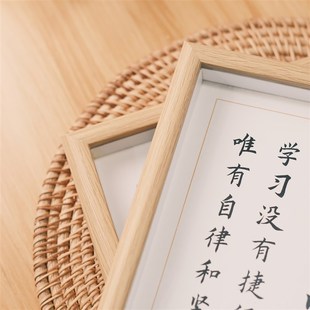 学习没有捷径
唯有自律和坚